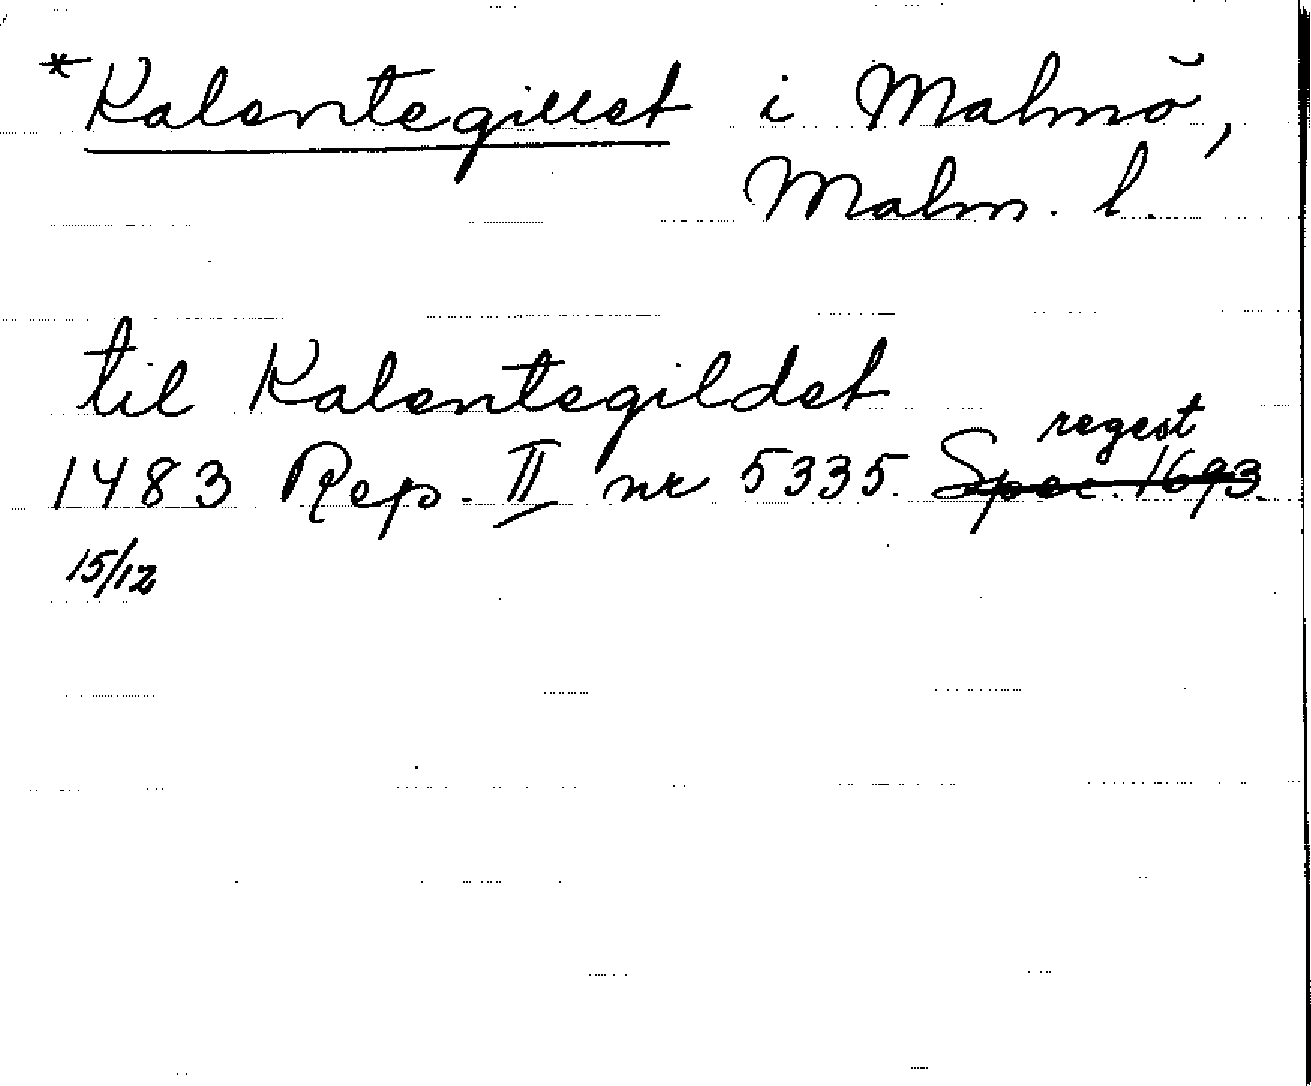 *Kalentegillet i Malmö,
Malm. l.
til Kalentegildet
regest
1483 Rep. II nr 5335. Spec. 1693.
15/12